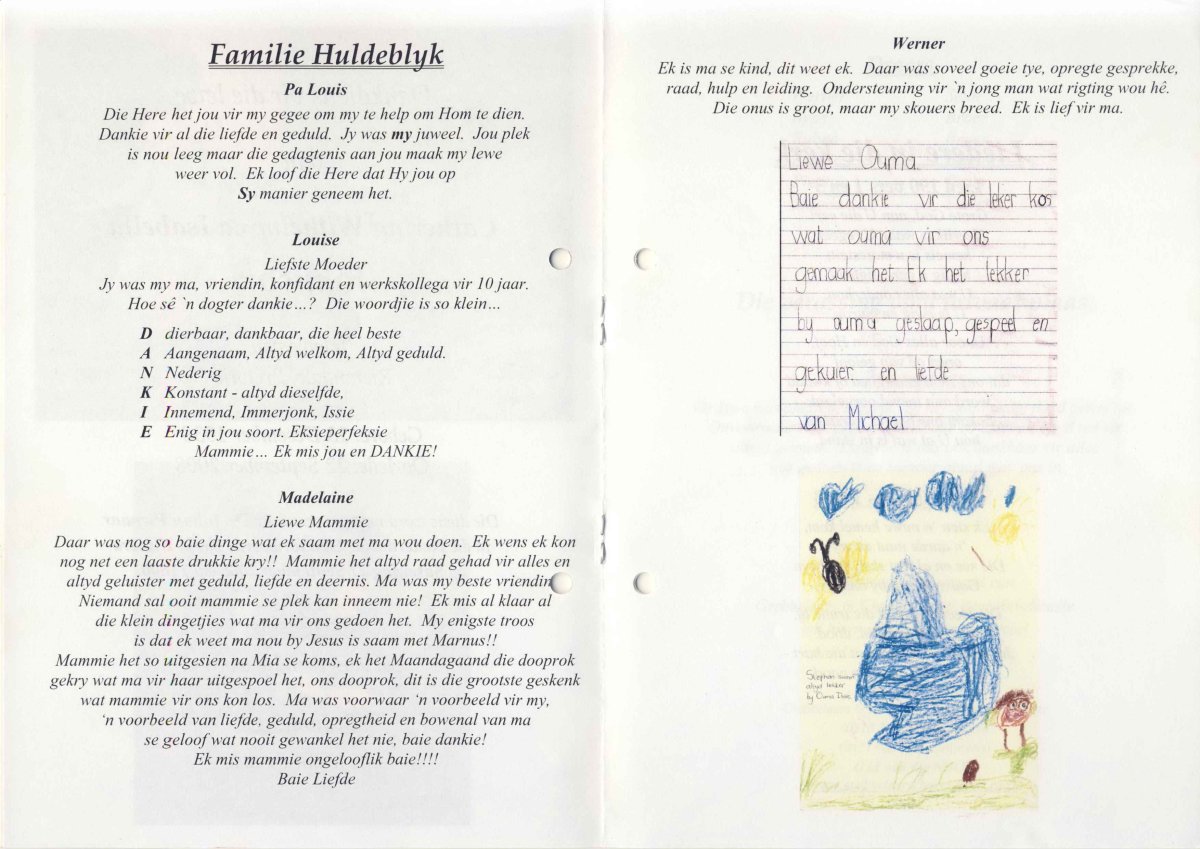 Familie Huldeblyk
Pa Louis
Die Here het jou vir my gegee om my te help om Hom te dien.
Dankie vir al die liefde en geduld. Jy was my juweel. Jou plek
is nou leeg maar die gedagtenis aan jou maak my lewe
weer vol. Ek loof die Here dat Hy jou op
Sy manier geneem het.
Louise
Liefste Moeder
Jy was my ma, vriendin, konfidant en werkskollega vir 10 jaar.
Hoe sê `n dogter dankie…? Die woordjie is so klein…
D dierbaar, dankbaar, die heel beste
A Aangenaam, Altyd welkom, Altyd geduld.
N Nederig
K Konstant - altyd dieselfde,
I Innemend, Immerjonk, Issie
E Enig in jou soort. Eksieperfeksie
Mammie… Ek mis jou en DANKIE!
Madelaine
Liewe Mammie
Daar was nog so baie dinge wat ek saam met ma wou doen. Ek wens ek kon
nog net een laaste drukkie kry!! Mammie het altyd raad gehad vir alles en
altyd geluister met geduld, liefde en deernis. Ma was my beste vriendin
Niemand sal ooit mammie se plek kan inneem nie! Ek mis al klaar al
die klein dingetjies wat ma vir ons gedoen het. My enigste troos
is dat ek weet ma nou by Jesus is saam met Marnus!!
Mammie het so uitgesien na Mia se koms, ek het Maandagaand die dooprok
gekry wat ma vir haar uitgespoel het, ons dooprok, dit is die grootste geskenk
wat mammie vir ons kon los. Ma was voorwaar ‘n voorbeeld vir my,
‘n voorbeeld van liefde, geduld, opregtheid en bowenal van ma
se geloof wat nooit gewankel het nie, baie dankie!
Ek mis mammie ongelooflik baie!!!!
Baie Liefde
Werner
Ek is ma se kind, dit weet ek. Daar was soveel goeie tye, opregte gesprekke,
raad, hulp en leiding. Ondersteuning vir `n jong man wat rigting wou hê.
Die onus is groot, maar my skouers breed. Ek is lief vir ma.
Liewe Ouma
Baie dankie vir die leker kos
wat ouma vir ons
gemaak het. Ek het lekker
by ouma geslaap, gespeel en
gekuier. en liefde
van Michael
Stephan
altyd lekker
by Ouma